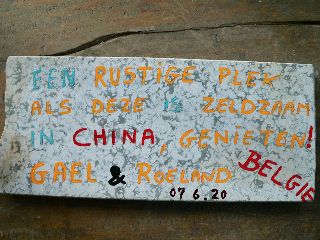 EEN RUSTIGE PLEK
ALS DEZE IS ZELDZAAM
IN CHINA, GENIETEN!
GAEL & ROELAND BELGIE
07 6.20